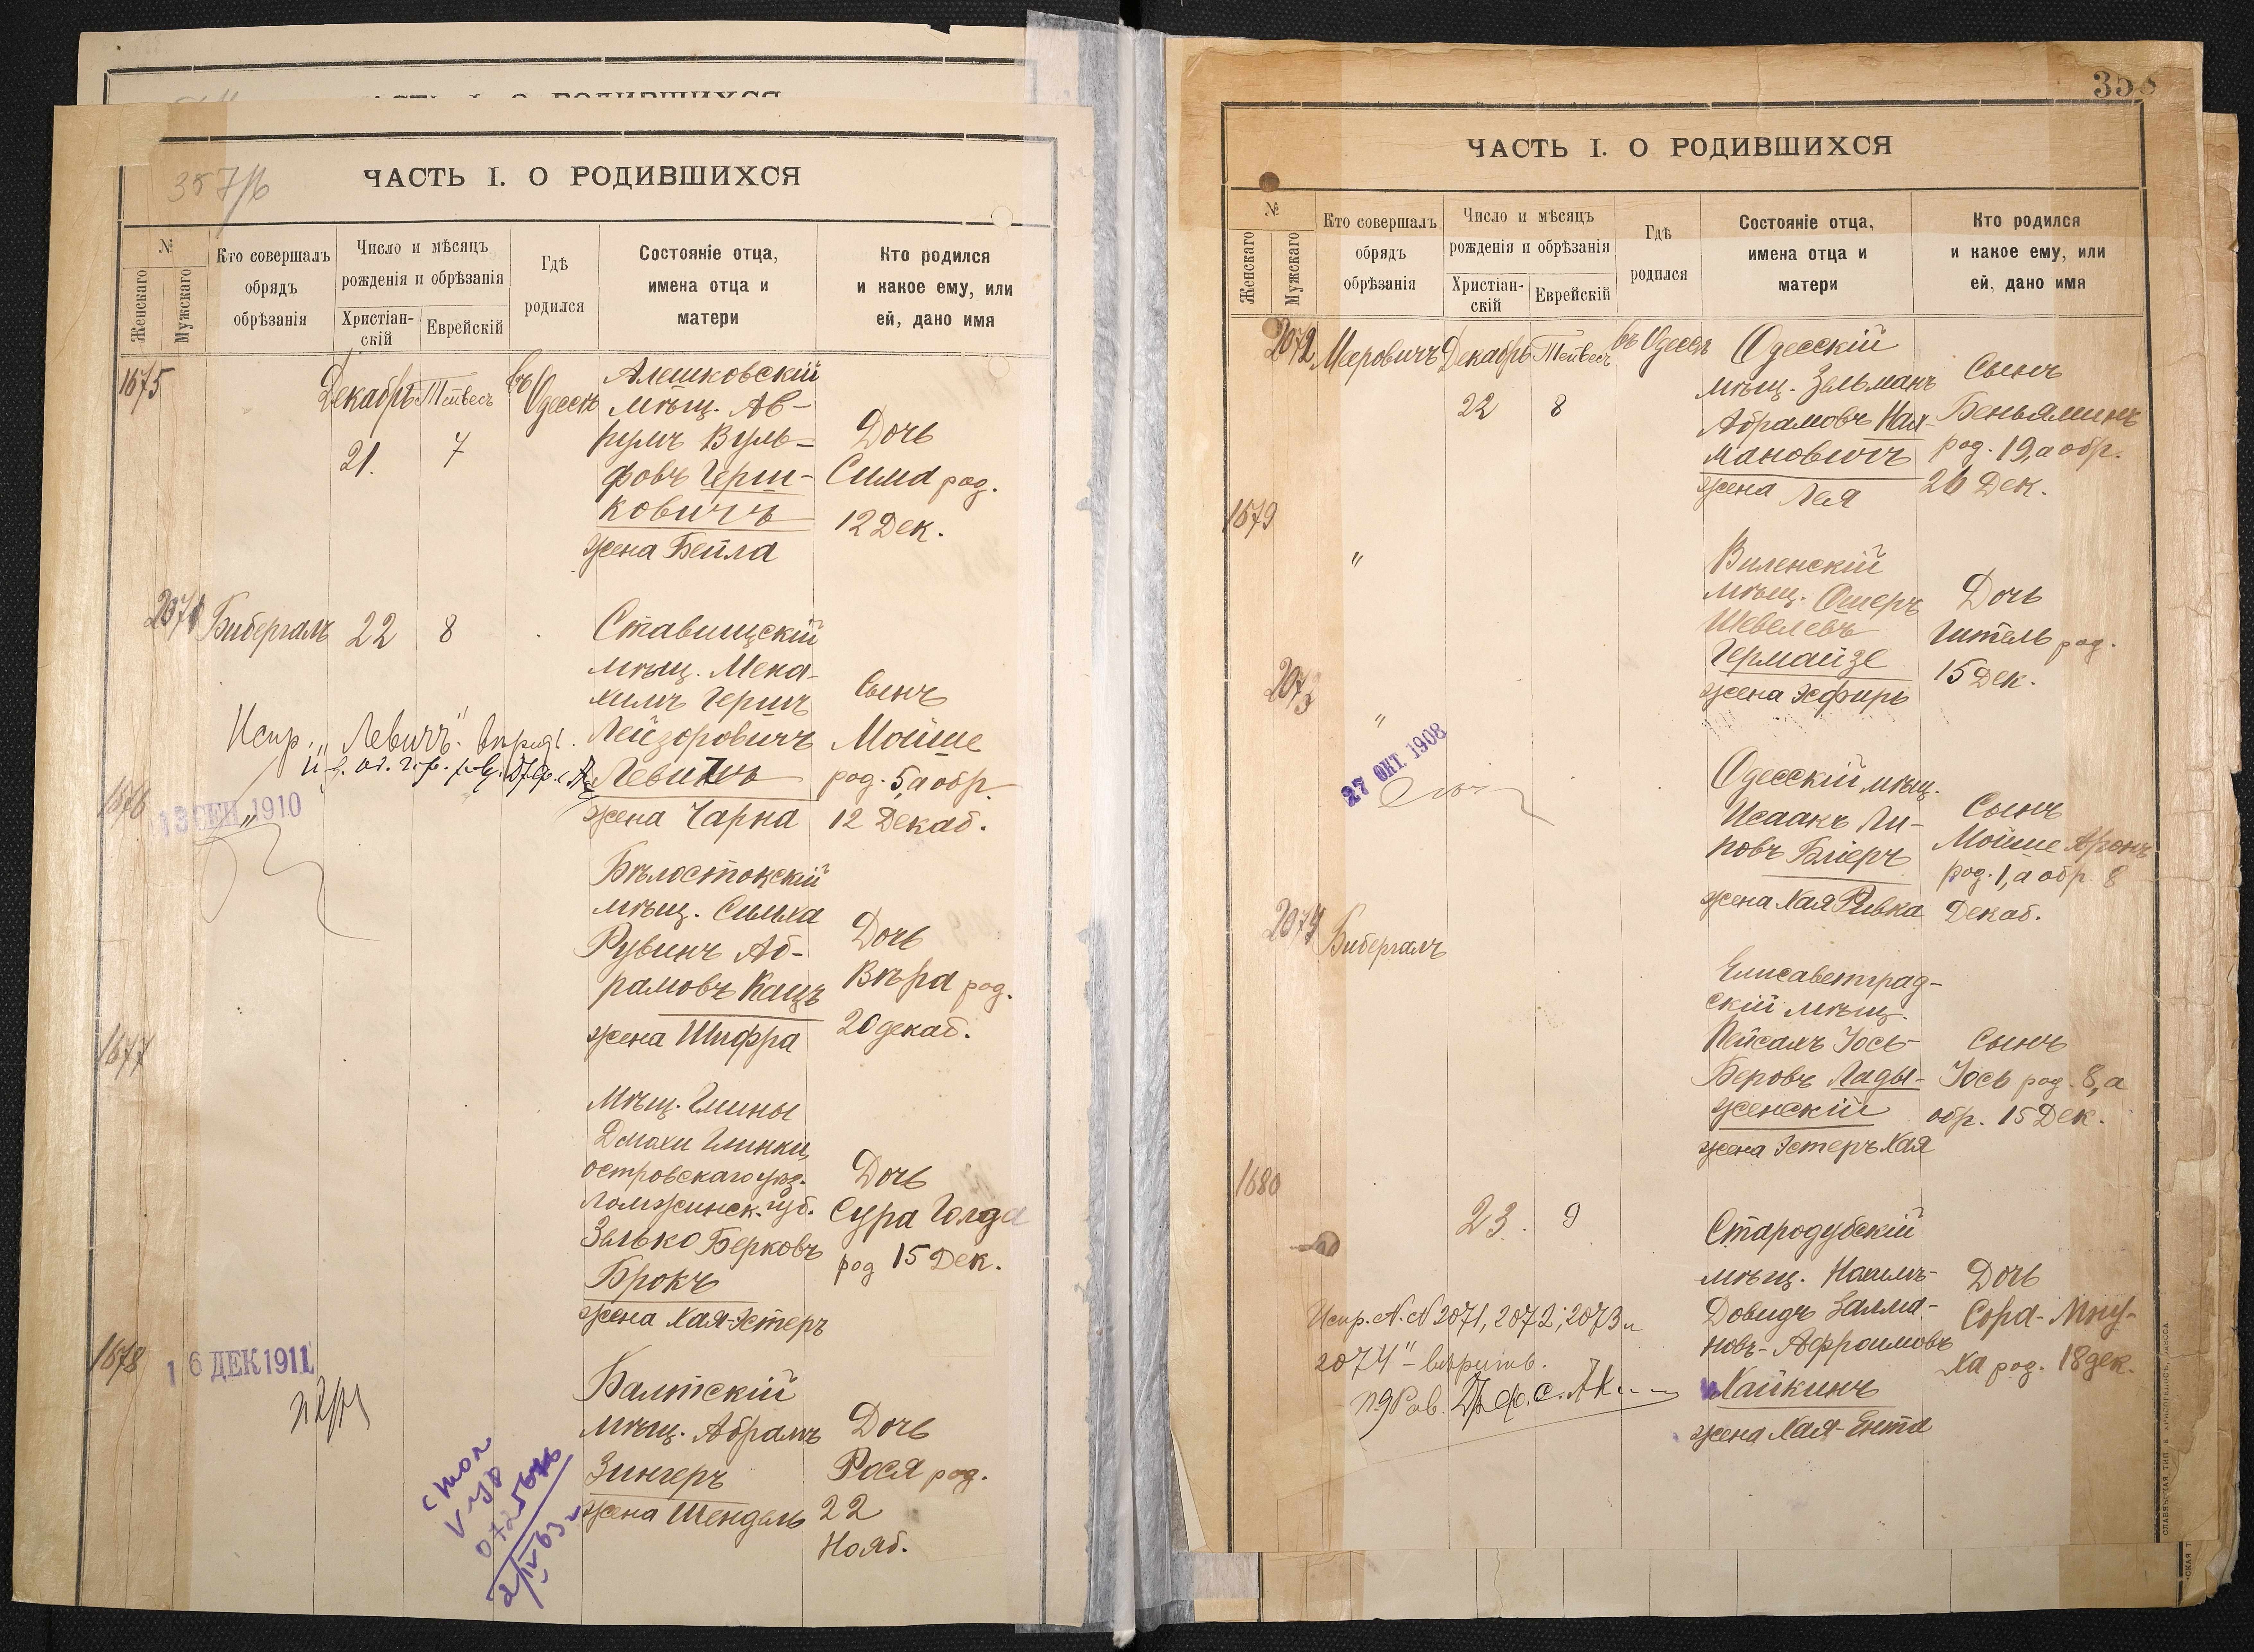 ЧАСТЬ I. О РОДИВШИХСЯ
№
Женскаго
Мужскаго
Кто совершалъ
обрядъ
обрѣзанія
Число и мѣсяцъ
рожденія и обрѣзанія
Христіан-
скій
Еврейскій
Гдѣ
родился
Состояніе отца,
имена отца и
матери
Кто родился
и какое ему, или
ей, дано имя
1675
Декабрь
21.
Тейвесъ
7
въ
Одессѣ
Алешковскій
мѣщ. Ав-
румъ Вуль-
фовъ Герш-
ковичъ
жена Бейла
Дочь
Сима род.
12 Дек.
2071
Бибергалъ
22
8
Ставищскій
мѣщ. Мена-
химъ Гершъ
Лейзоровичъ
жена Чарна
Сынъ
Мойше
род. 5, а обр.
12 Декаб.
Испр. „Левичъ"
1676
13 СЕН 1910
"
Бѣлостокскій
мѣщ. Симха
Рувинъ Аб-
рамовъ Кацъ
жена Шифра
Дочь
Вѣра род.
20 декаб.
1677
Мѣщ. Гмины
Глинки,
островскаго уѣз.
Ломжинск. губ.
Зелько Берковъ
Брокъ
жена Хая-Эстеръ
Дочь
Сура Голда
род 15 Дек.
1678
16 ДЕК 1911
Балтскій
мѣщ. Абрамъ
Зингеръ
жена Шендель
Дочь
Рося род.
22
Нояб.
стол
358
ЧАСТЬ I. О РОДИВШИХСЯ
№
Женскаго
Мужскаго
Кто совершалъ
обрядъ
обрѣзанія
Число и мѣсяцъ
рожденія и обрѣзанія
Христіан-
скій
Еврейскій
Гдѣ
родился
Состояніе отца,
имена отца и
матери
Кто родился
и какое ему, или
ей, дано имя
2072
Мееровичъ
Декабрь
22
Тейвесъ
8
въ Одессѣ
Одесскій
мѣщ. Зельманъ
Абрамовъ Кал-
мановичъ
жена Лея
Сынъ
Беньяминъ
род. 19, а обр.
26 Дек.
1679
"
Виленскій
мѣщ. Ошеръ
Шевелевъ
Гермайзе
жена Эсфирь
Дочь
Гитель род.
15 Дек.
2073
"
27 ОКТ. 1908
Одесскій мѣщ.
Исаакъ Ли-
повъ Бліеръ
жена Хая Ривка
Сынъ
Мойше Аронъ
род. 1, а обр. 8
Декаб.
2074
Бибергалъ
Елисаветград-
скій мѣщ.
Пейсахъ Іось-
Беровъ Лады-
женскій
жена Эстеръ Хая
Сынъ
Іось род. 8, а
обр. 15 Дек.
1680
23.
9
Стародубскій
мѣщ.
Довидъ Залма-
новъ-Афроимовъ
Хайкинъ
жена Хая-Ента
Дочь
Сора-Мну-
ха род. 18 дек.
Испр. №№ 2071, 2072, 2073 и
2074